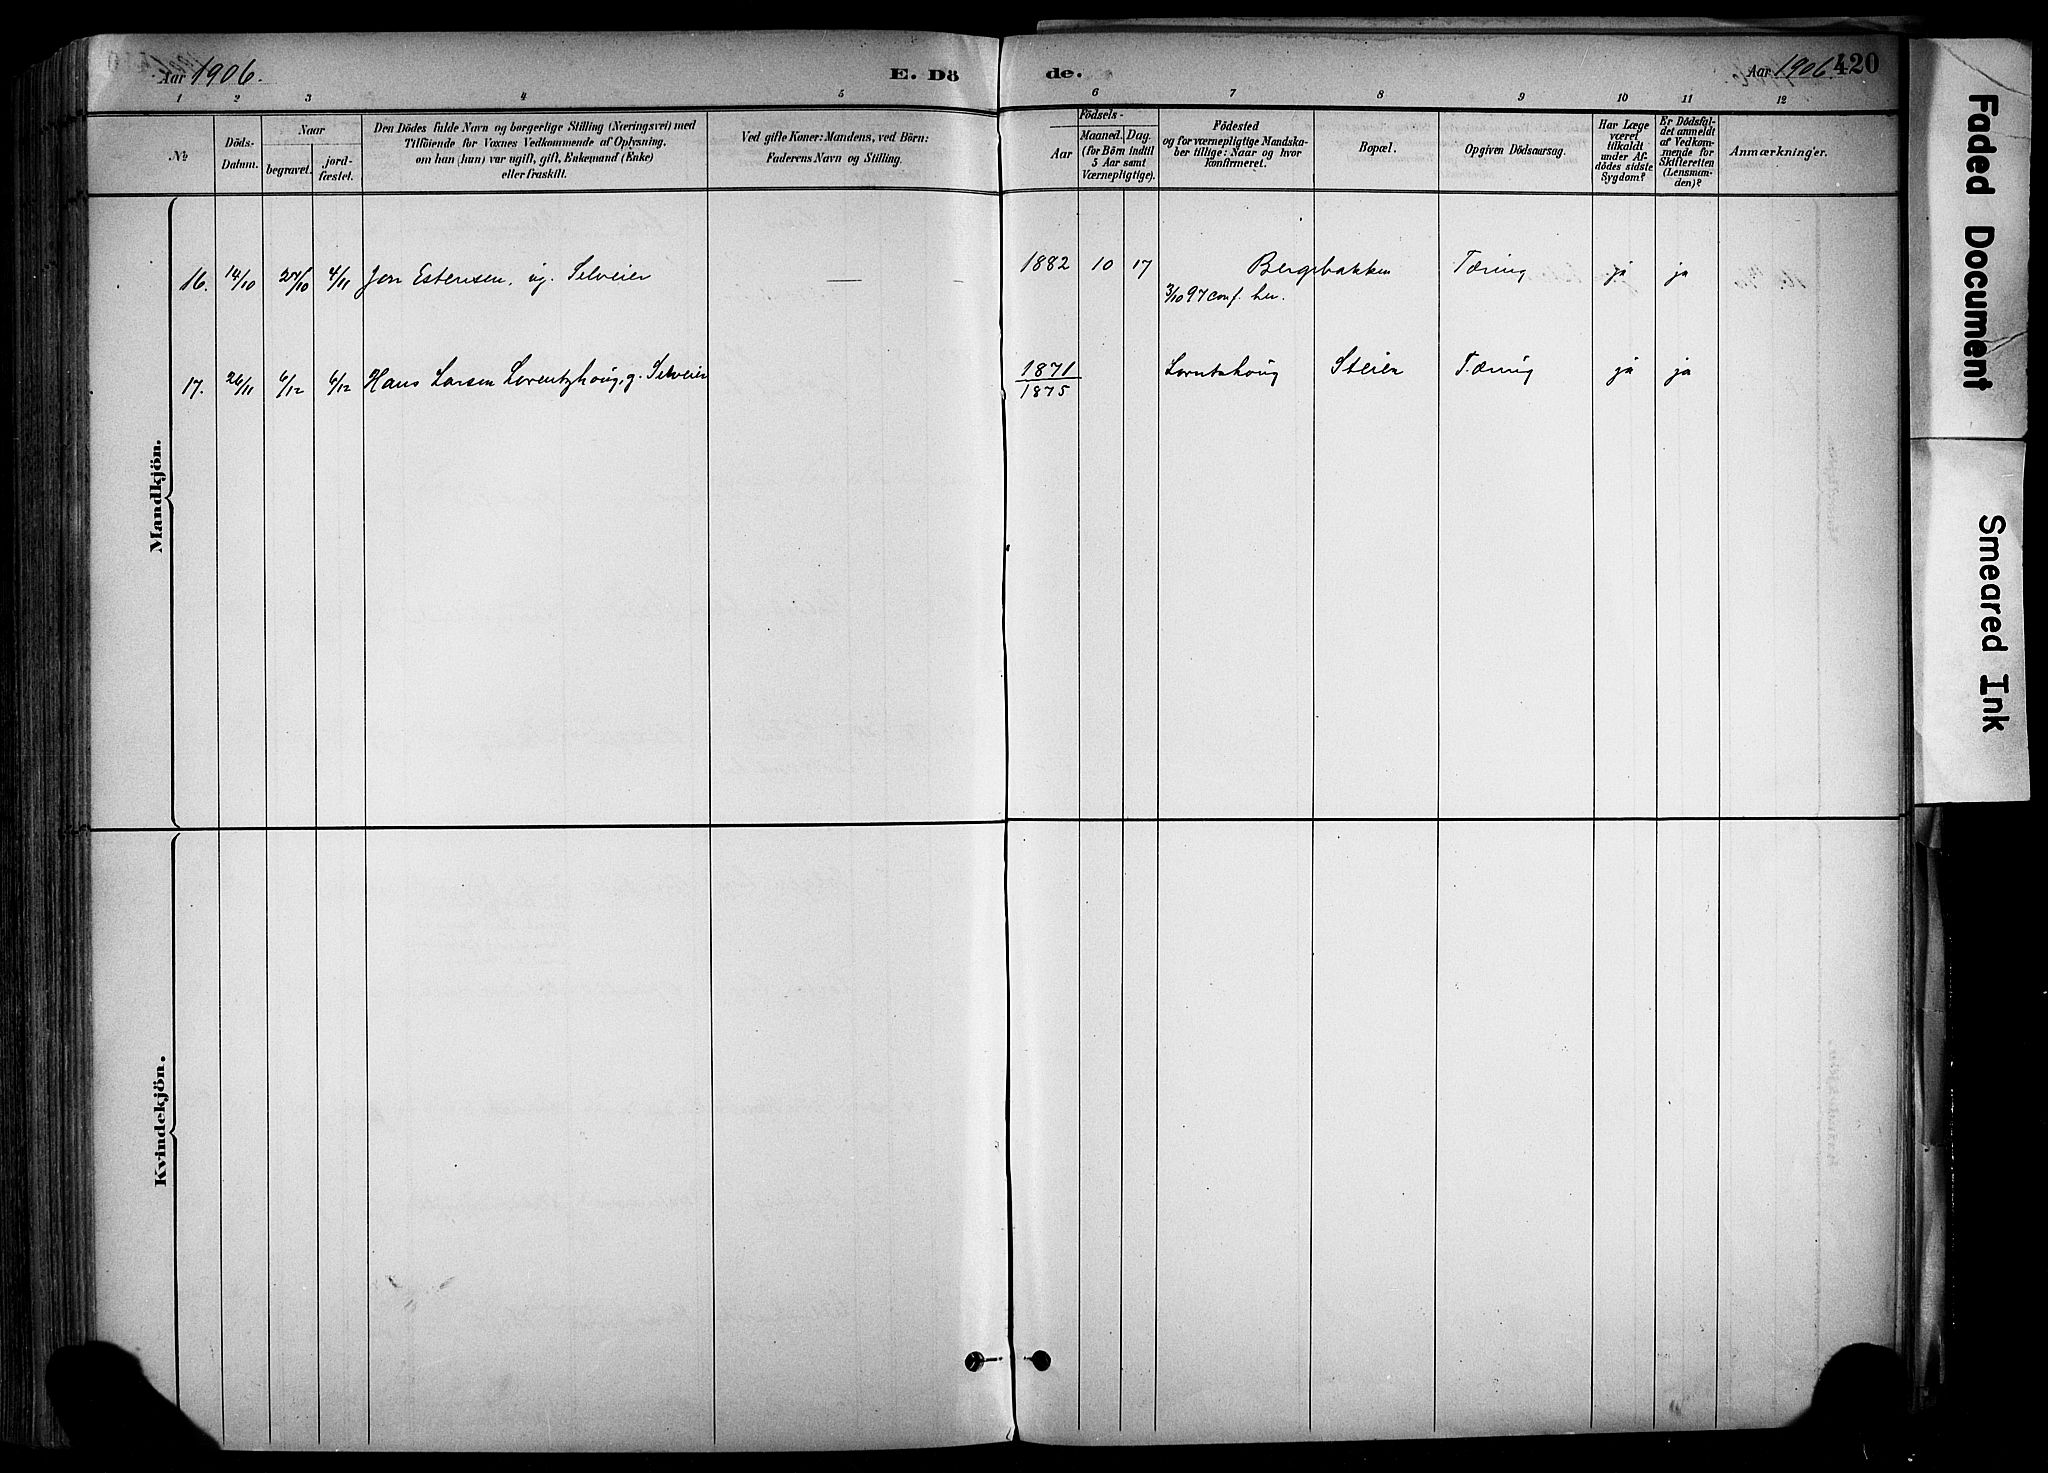 Aar 1906.
E. Dö
de.
Aar 1906.
420
1 2 3 4 5 6 7 8 9 10 11 12
No
Döds-
Datum.
Naar
begravet.
jord-
fæstet.
Den Dödes fulde Navn og borgerlige Stilling (Næringsvei) med
Tilföiende for Voxnes Vedkommende af Oplysning,
om han (hun) var ugift, gift, Enkemand (Enke)
eller fraskilt.
Ved gifte Koner: Mandens, ved Börn:
Faderens Navn og Stilling.
Födsels-
Aar
Maaned.
Dag.
(for Börn indtil
5 Aar samt
Værnepligtige).
Födested
og for værnepligtige Mandska-
ber tillige: Naar og hvor
konfirmeret.
Bopæl.
Opgiven Dödsaarsag.
Har Læge
været
tilkaldt
under Af-
dödes sidste
Sygdom?
Er Dödsfal-
det anmeldt
af Vedkom-
mende for
Skifteretten
(Lensman-
den)?
Anmærkninger.
Mandkjön.
16. 14/10 27/10 4/11 Jon Estensen, ug. Selveier — 1882 10 17 Bergsbakken Tæring ja ja
3/10 97 conf. her.
17. 26/11 6/12 6/12 Hans Larsen Lorentzhoug, g. Selveier 1871 Lorntshoug Steien Tæring ja ja
1875
Kvindekjön.
Faded Document
Smeared Ink